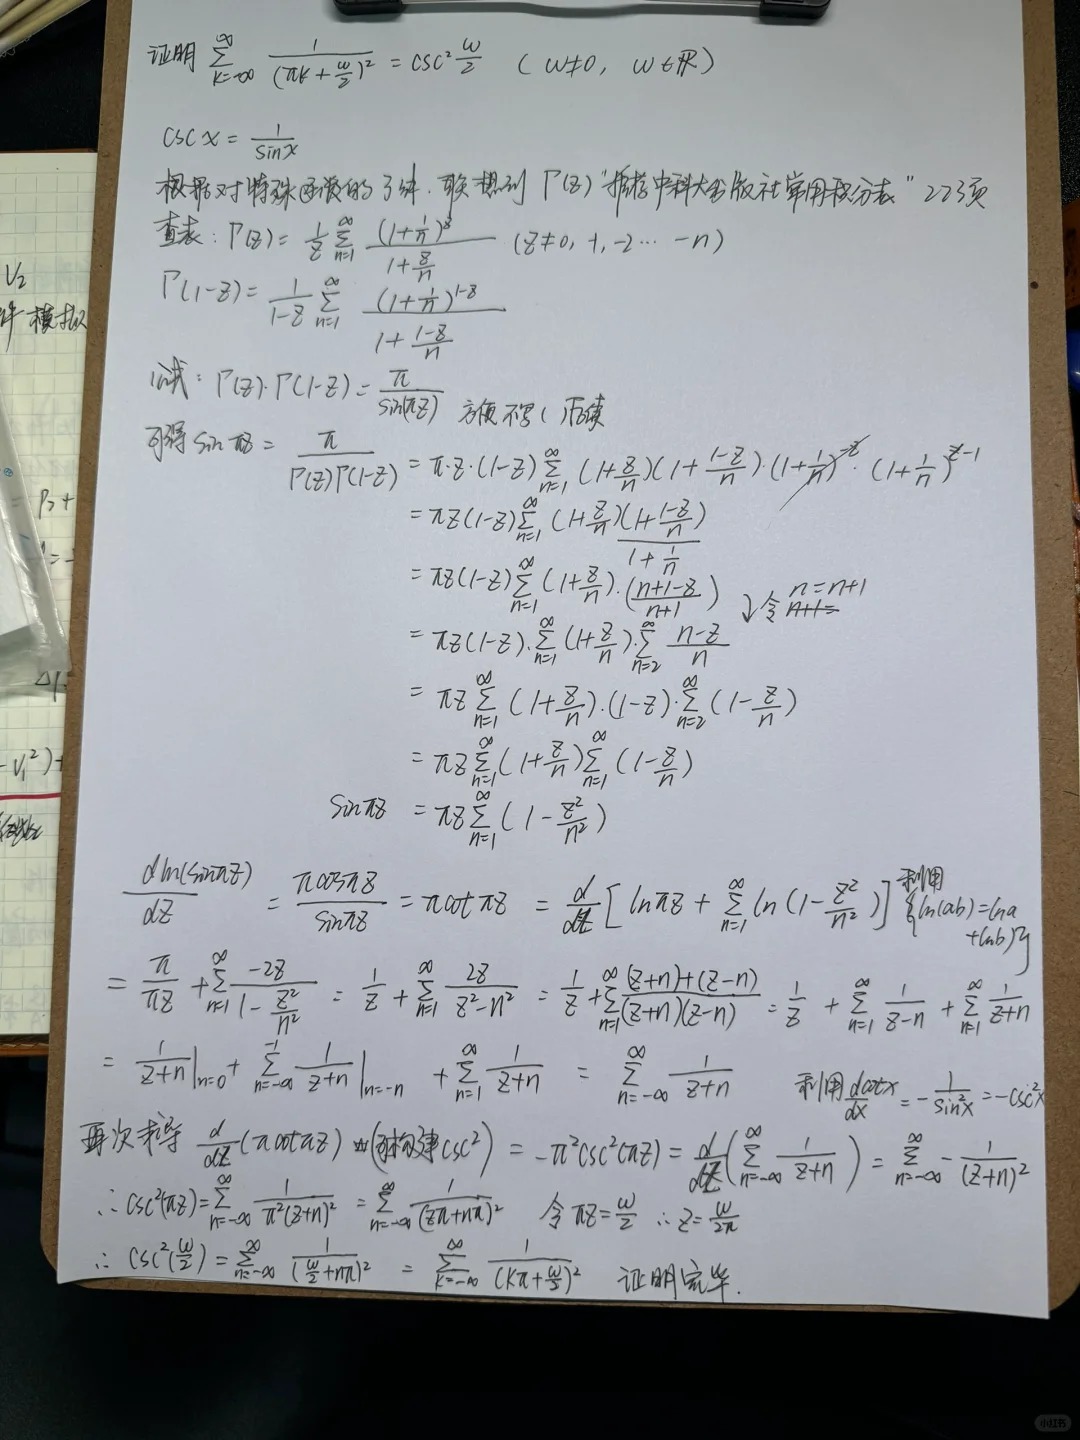 证明 ∑_{k=-∞}^{∞} 1/(πk+ω/2)² = csc² ω/2 （ω≠0, ω∈ℝ）
csc x = 1/sin x
根据对特殊函数的了解，联想到 Γ(z) "推荐中科大出版社常用积分表" 223页
查表：Γ(z) = 1/z ∑_{n=1}^{∞} (1+1/n)^z/(1+z/n) (z≠0, -1, -2 ... -n)
V₂
Γ(1-z) = 1/(1-z) ∑_{n=1}^{∞} (1+1/n)^{1-z}/(1+(1-z)/n)
模拟
公式：Γ(z)·Γ(1-z) = π/sin(πz) 方便不写( )后续
可得 sinπz = π/(Γ(z)Γ(1-z)) = π·z·(1-z) ∑_{n=1}^{∞} (1+z/n)(1+(1-z)/n)·(1+1/n)^{-z}·(1+1/n)^{z-1}
= πz(1-z) ∑_{n=1}^{∞} (1+z/n)(1+(1-z)/n)/(1+1/n)
= πz(1-z) ∑_{n=1}^{∞} (1+z/n)·((n+1-z)/(n+1)) ↓令 n=n+1
n+1=
= πz(1-z)·∑_{n=1}^{∞} (1+z/n)·∑_{n=2}^{∞} (n-z)/n
= πz ∑_{n=1}^{∞} (1+z/n)·(1-z)·∑_{n=2}^{∞} (1-z/n)
= πz ∑_{n=1}^{∞} (1+z/n) ∑_{n=1}^{∞} (1-z/n)
sinπz = πz ∑_{n=1}^{∞} (1-z²/n²)
d ln(sinπz)/dz = πcosπz/sinπz = πcotπz = d/dz [lnπz + ∑_{n=1}^{∞} ln(1-z²/n²)] 利用{ln(ab)=lna+lnb)}
= π/πz + ∑_{n=1}^{∞} -2z/(1-z²/n²) = 1/z + ∑_{n=1}^{∞} 2z/(z²-n²) = 1/z + ∑_{n=1}^{∞} ((z+n)+(z-n))/((z+n)(z-n)) = 1/z + ∑_{n=1}^{∞} 1/(z-n) + ∑_{n=1}^{∞} 1/(z+n)
= 1/(z+n)|_{n=0} + ∑_{n=-∞}^{-1} 1/(z+n)|_{n=-n} + ∑_{n=1}^{∞} 1/(z+n) = ∑_{n=-∞}^{∞} 1/(z+n) 利用 dcotx/dx = -1/sin²x = -csc²x
再次求导 d/dz(πcotπz) (可构建csc²) = -π²csc²(πz) = d/dz(∑_{n=-∞}^{∞} 1/(z+n)) = ∑_{n=-∞}^{∞} -1/(z+n)²
∴ csc²(πz) = ∑_{n=-∞}^{∞} 1/(π²(z+n)²) = ∑_{n=-∞}^{∞} 1/(zπ+nπ)² 令 πz=ω/2 ∴ z=ω/2π
∴ csc²(ω/2) = ∑_{n=-∞}^{∞} 1/(ω/2+nπ)² = ∑_{k=-∞}^{∞} 1/(kπ+ω/2)² 证明完毕.
小红书